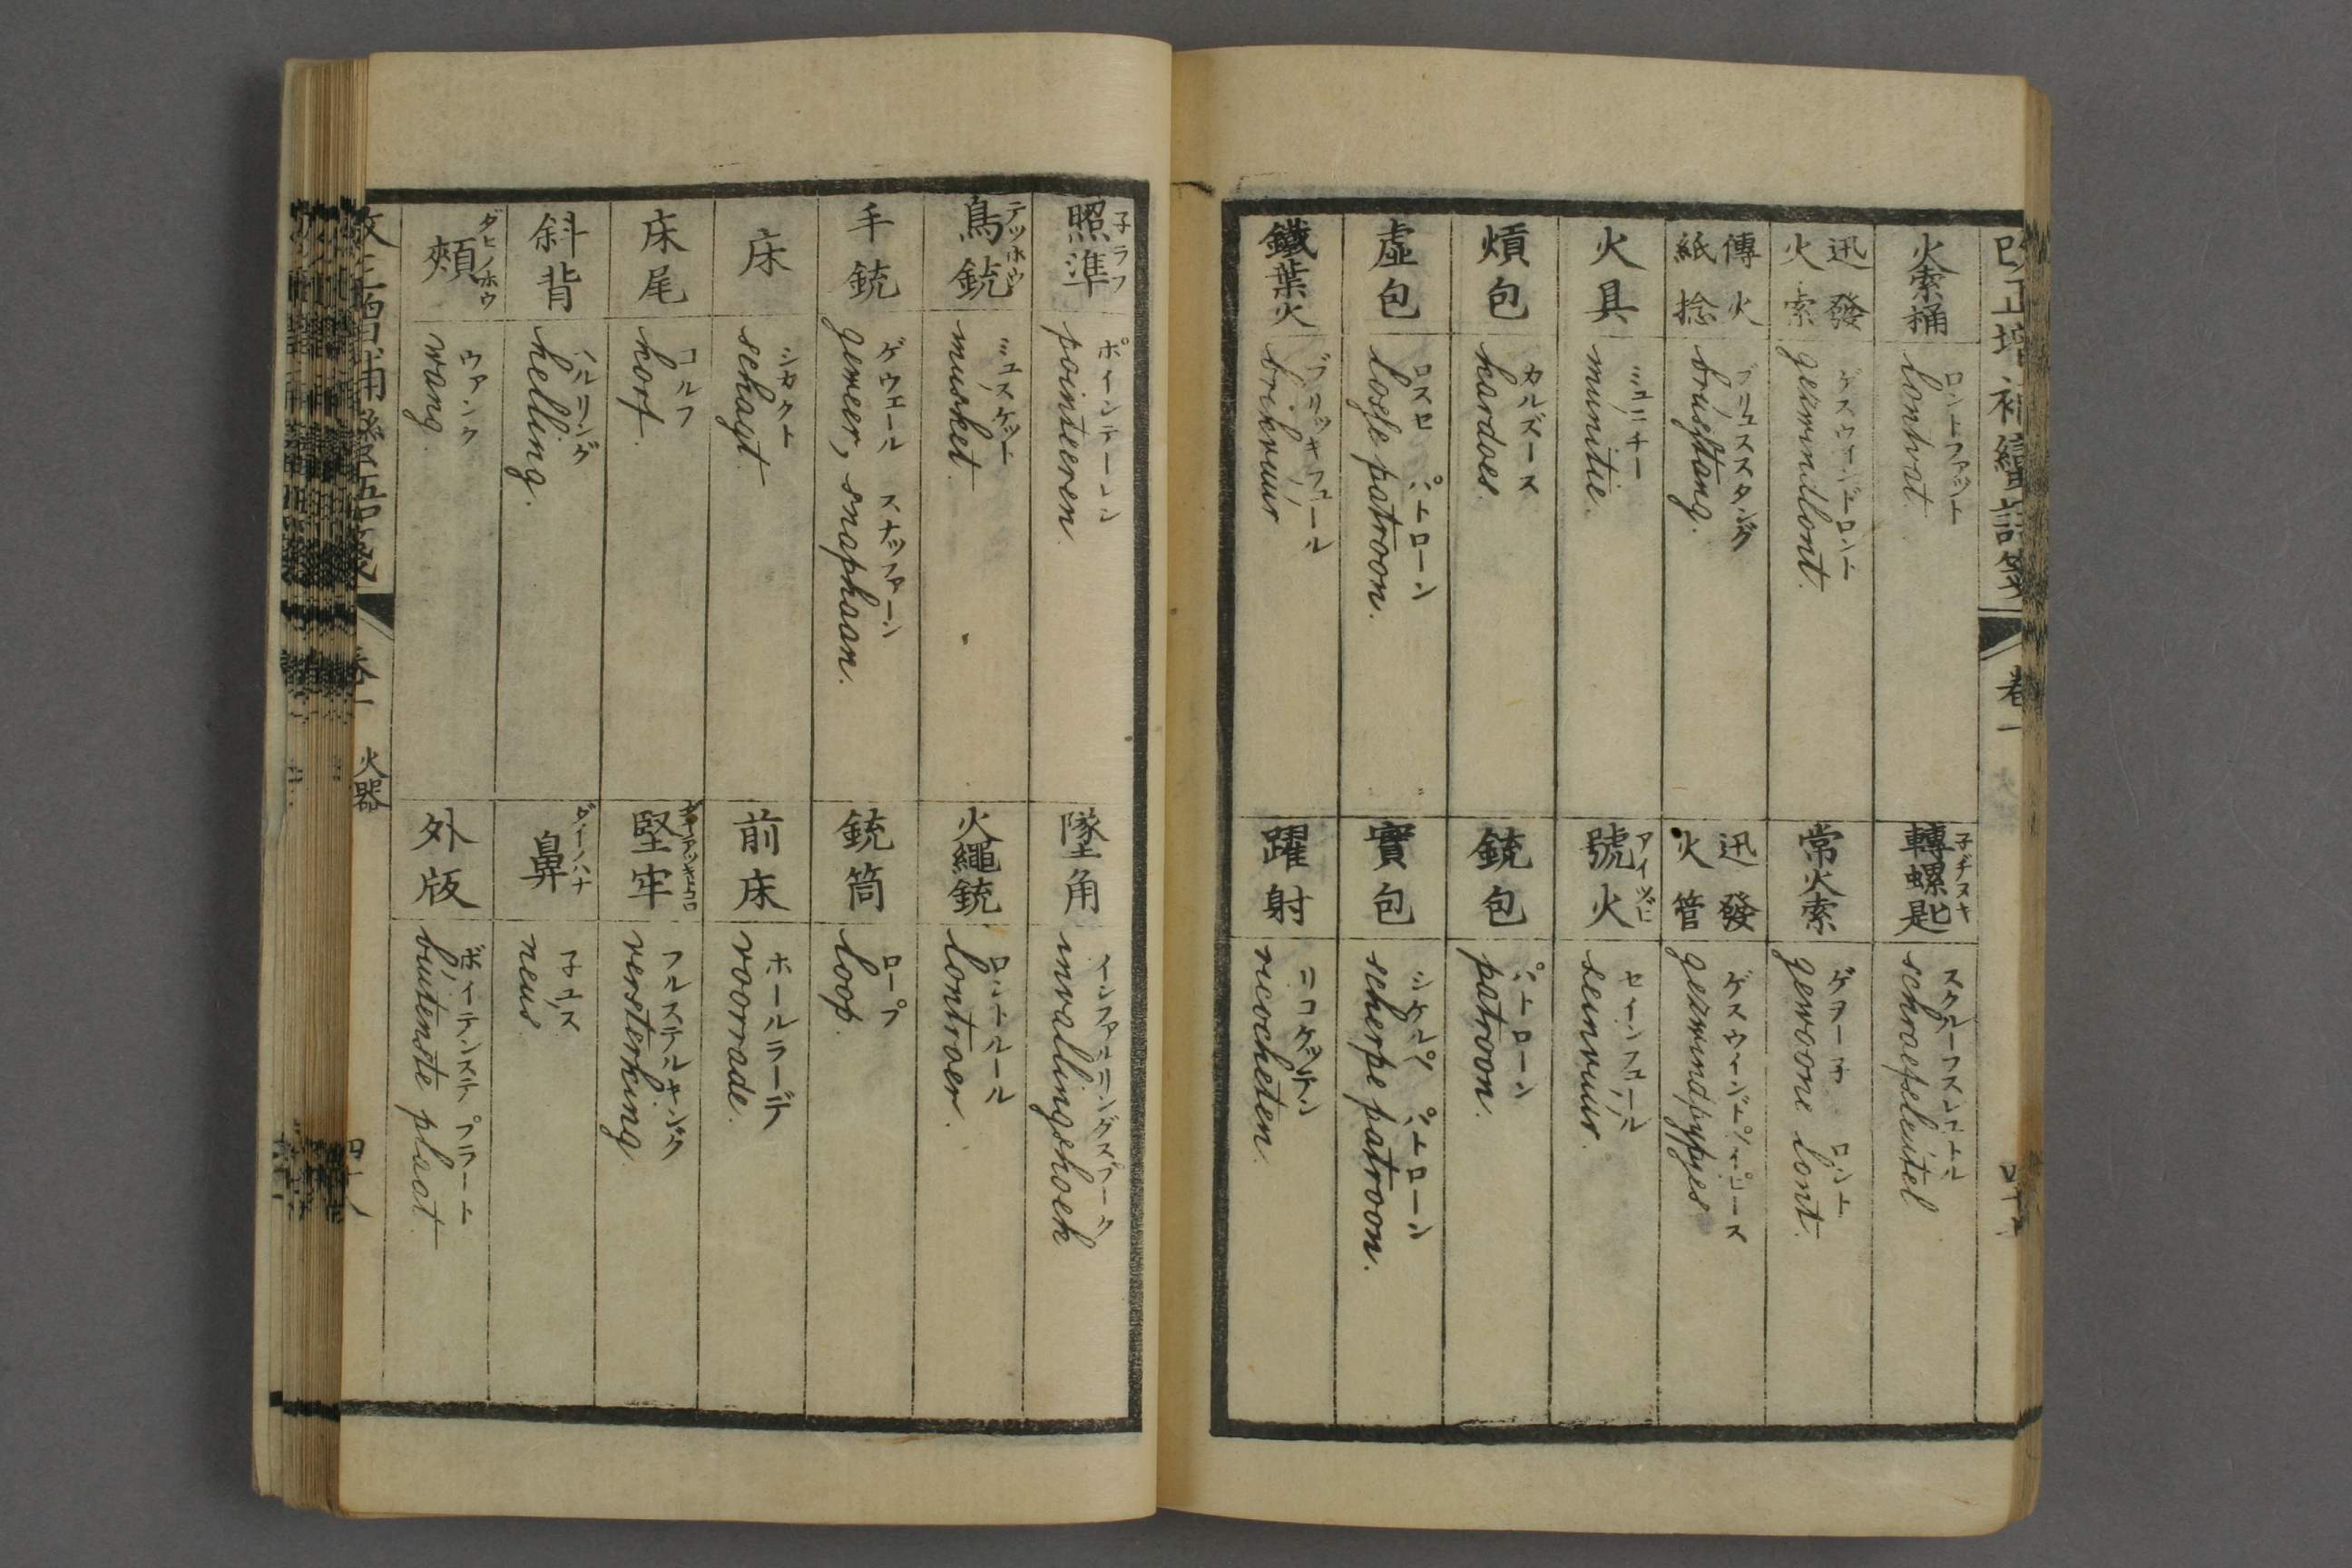 火索桶
ロントファット
lontvat.
轉螺匙
子ヂヌキ
schroefsleutel
迅發火索
ゲスウインドロント
gezwindlont.
常火索
ゲヲーネ ロント
gewoone lont.
傳火紙捻
ブリュススタング
brusstang.
迅發火管
ゲスウインドペイピース
gezwindpypjes
火具
ミュニチー
munitie.
號火
アイツヒ
セインフュール
seinvuur.
熕包
カルドース
kardoes.
銃包
パトローン
patroon.
虛包
ロスセ パトローン
losse patroon.
實包
シケルペ パトローン
scherpe patroon.
鐵葉火
ブリッキフュール
brikvuur
躍射
リコケッテン
ricocheten.
照準
子ラフ
ポインテーレン
pointeeren.
墜角
インファルリングズフーク
invallingshoek
鳥銃
テッホウ
ミュスケット
musket.
火繩銃
ロントルール
lontroer.
手銃
ゲウエール スナップファーン
geweer, snaphaan.
銃筒
ロープ
loop.
床
シカクト
schagt.
前床
ホールラーデ
voorrade.
床尾
コルフ
korf.
堅牢
フルステルキング
versterking.
斜背
ヘルリング
helling.
鼻
ダイノハナ
子ュス
neus
頰
ダヒノホウ
ウァング
wang.
外版
ボイテンステ プラート
buitenste plaat.
卷一
火器
四十八